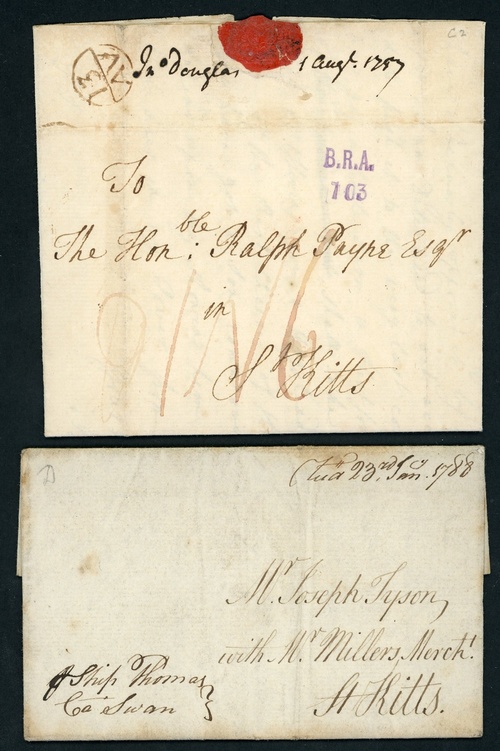 C2
13 AV
Jno Douglas 1 Augt. 1757
B.R.A.
703
To
The Honble: Ralph Payne Esqr
in
St Kitts
1N6
D
23rd Jany. 1788
Mr. Joseph Tyson,
with Mr Millers, Mercht.
St Kitts.
Ship Thomas
Ca Swan